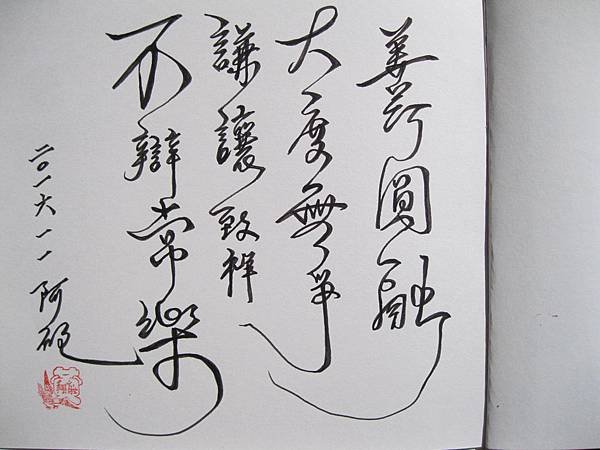 善巧圓融
大度無爭
謙讓致祥
不辯常樂
二〇一六一一 阿硯